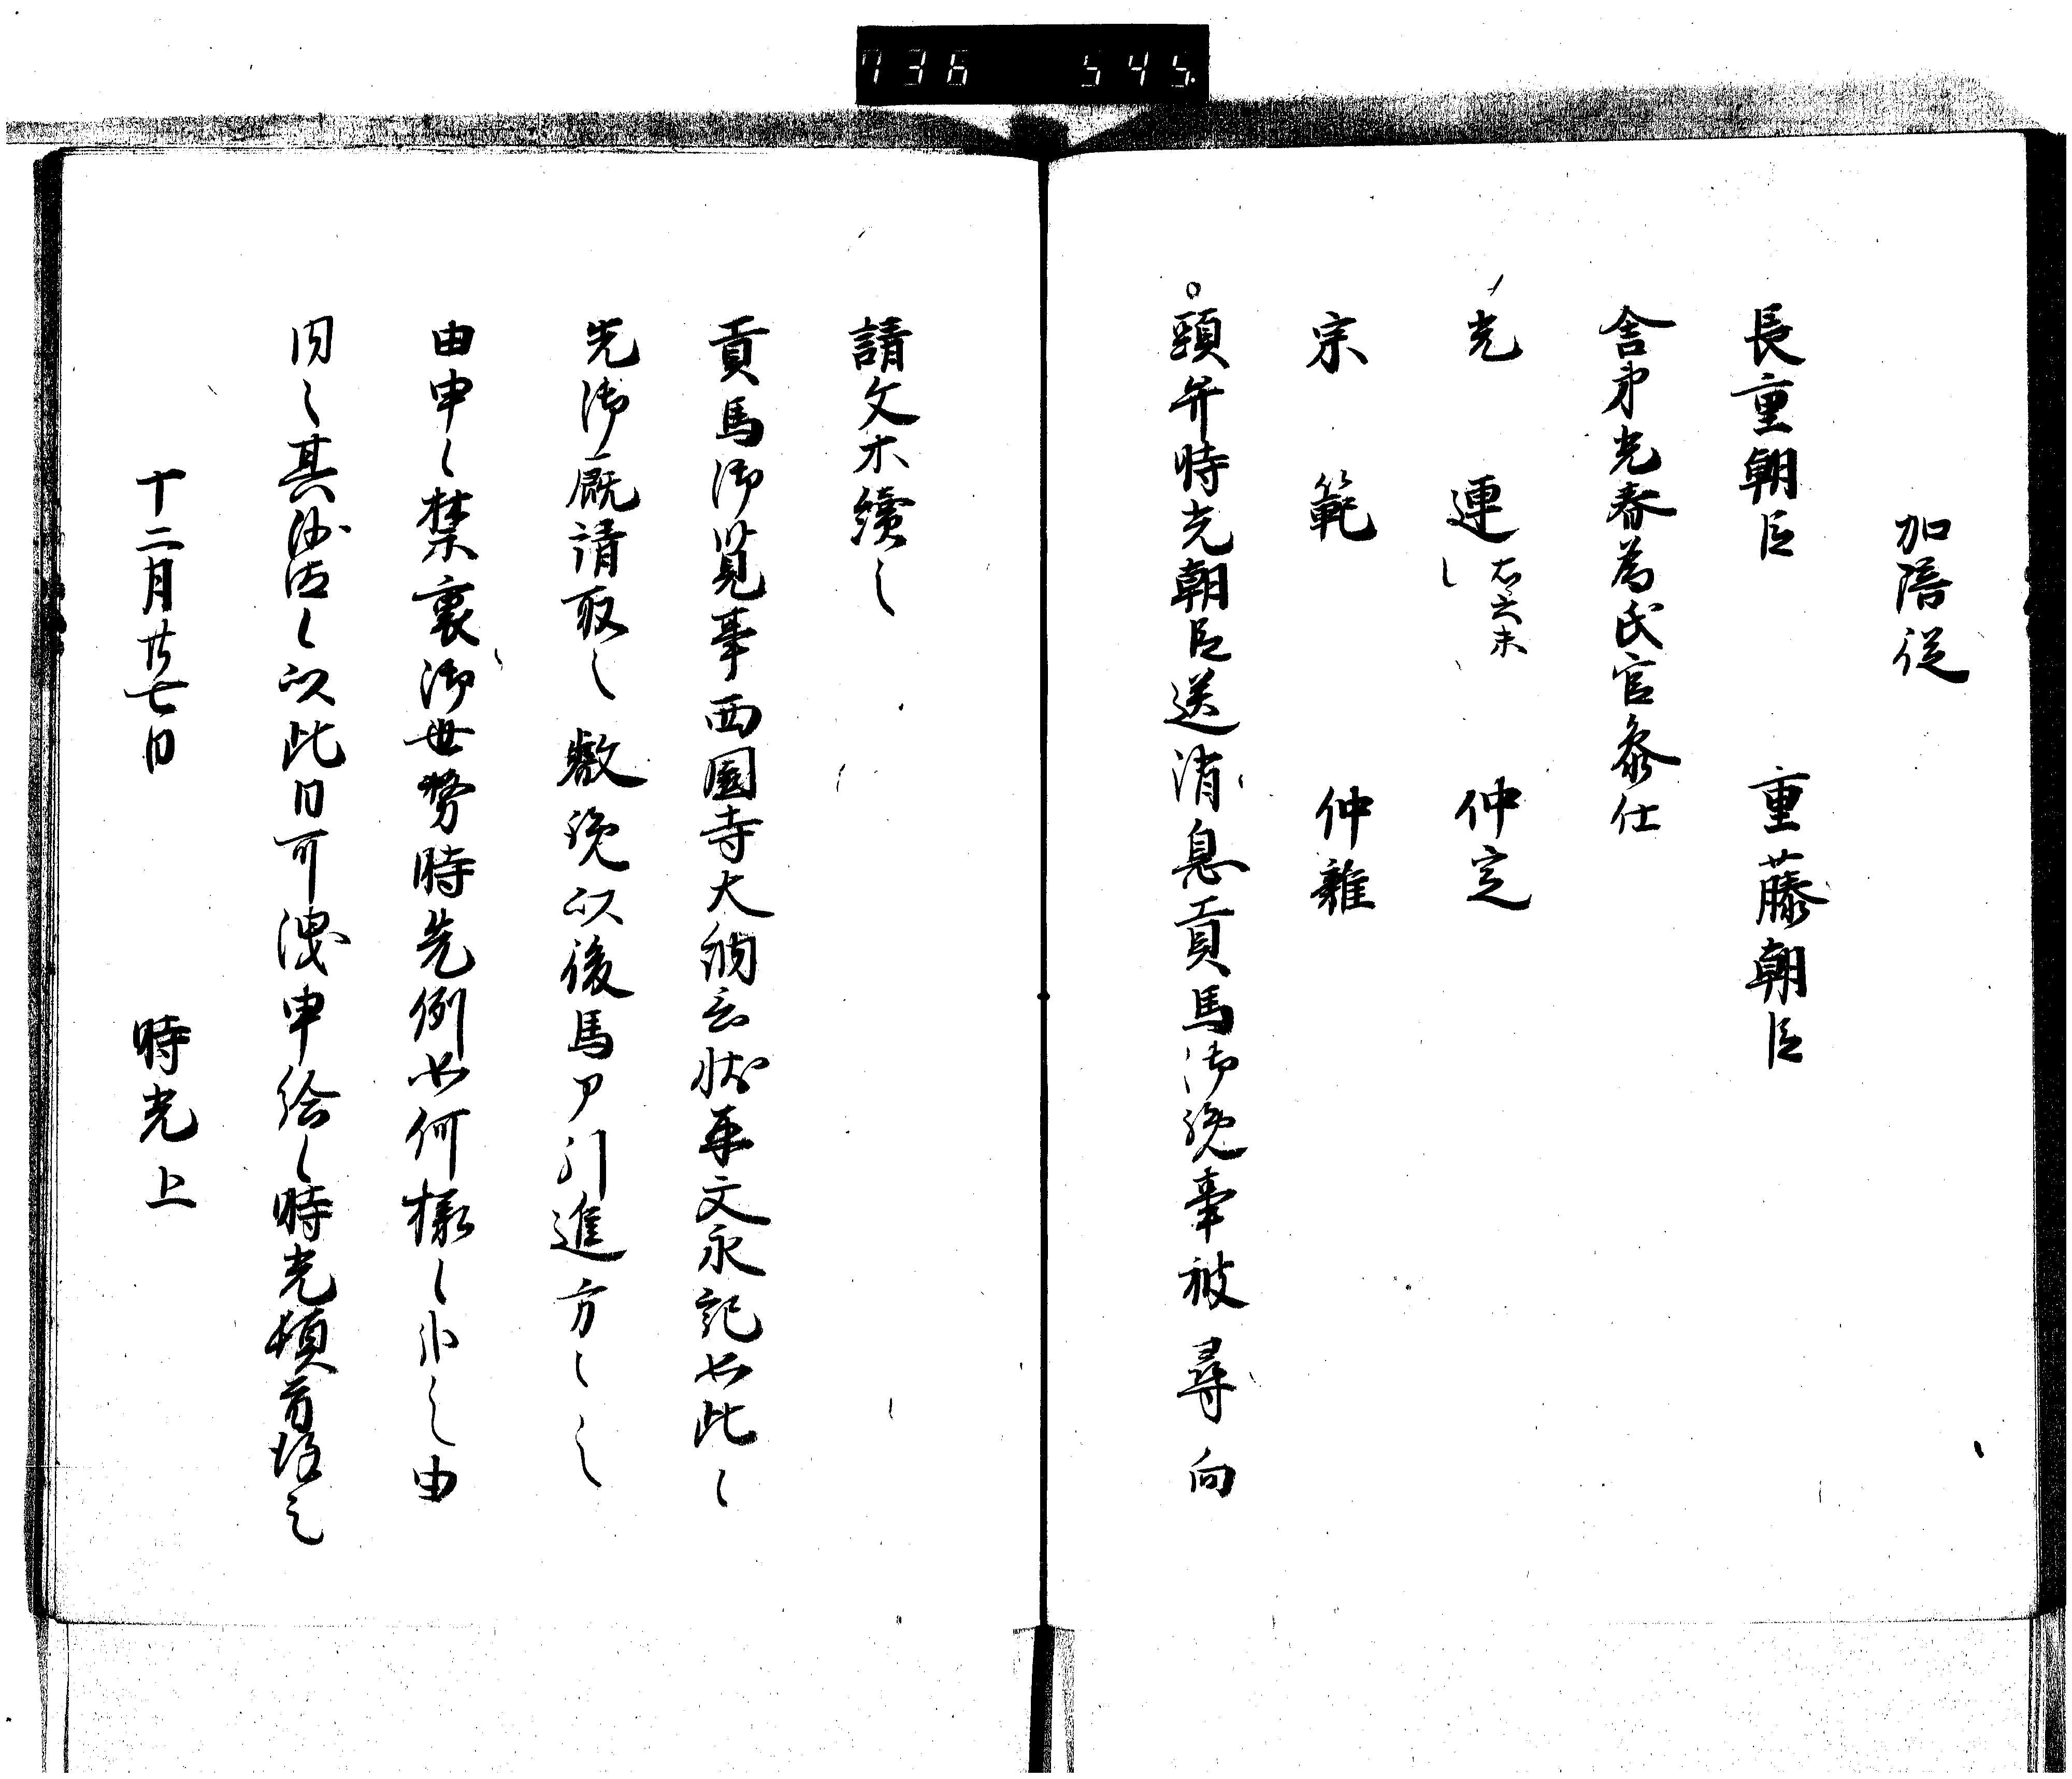 736 545
加陪従
長重朝臣 重藤朝臣
舎弟光春為氏官参仕
光連 仲定
宗範 仲雑
頭弁時光朝臣送消息貢馬御覧事被尋向
請文木続之
貢馬御覧事西園寺大納言状並文永記如此候
先御厩請取之敷覧以後馬ヲ引進方候之
由申候禁裏御世務時先例如何様候哉之由
内々其沙汰候以此旨可洩申給候時光頓首謹言
十二月廿七日 時光上